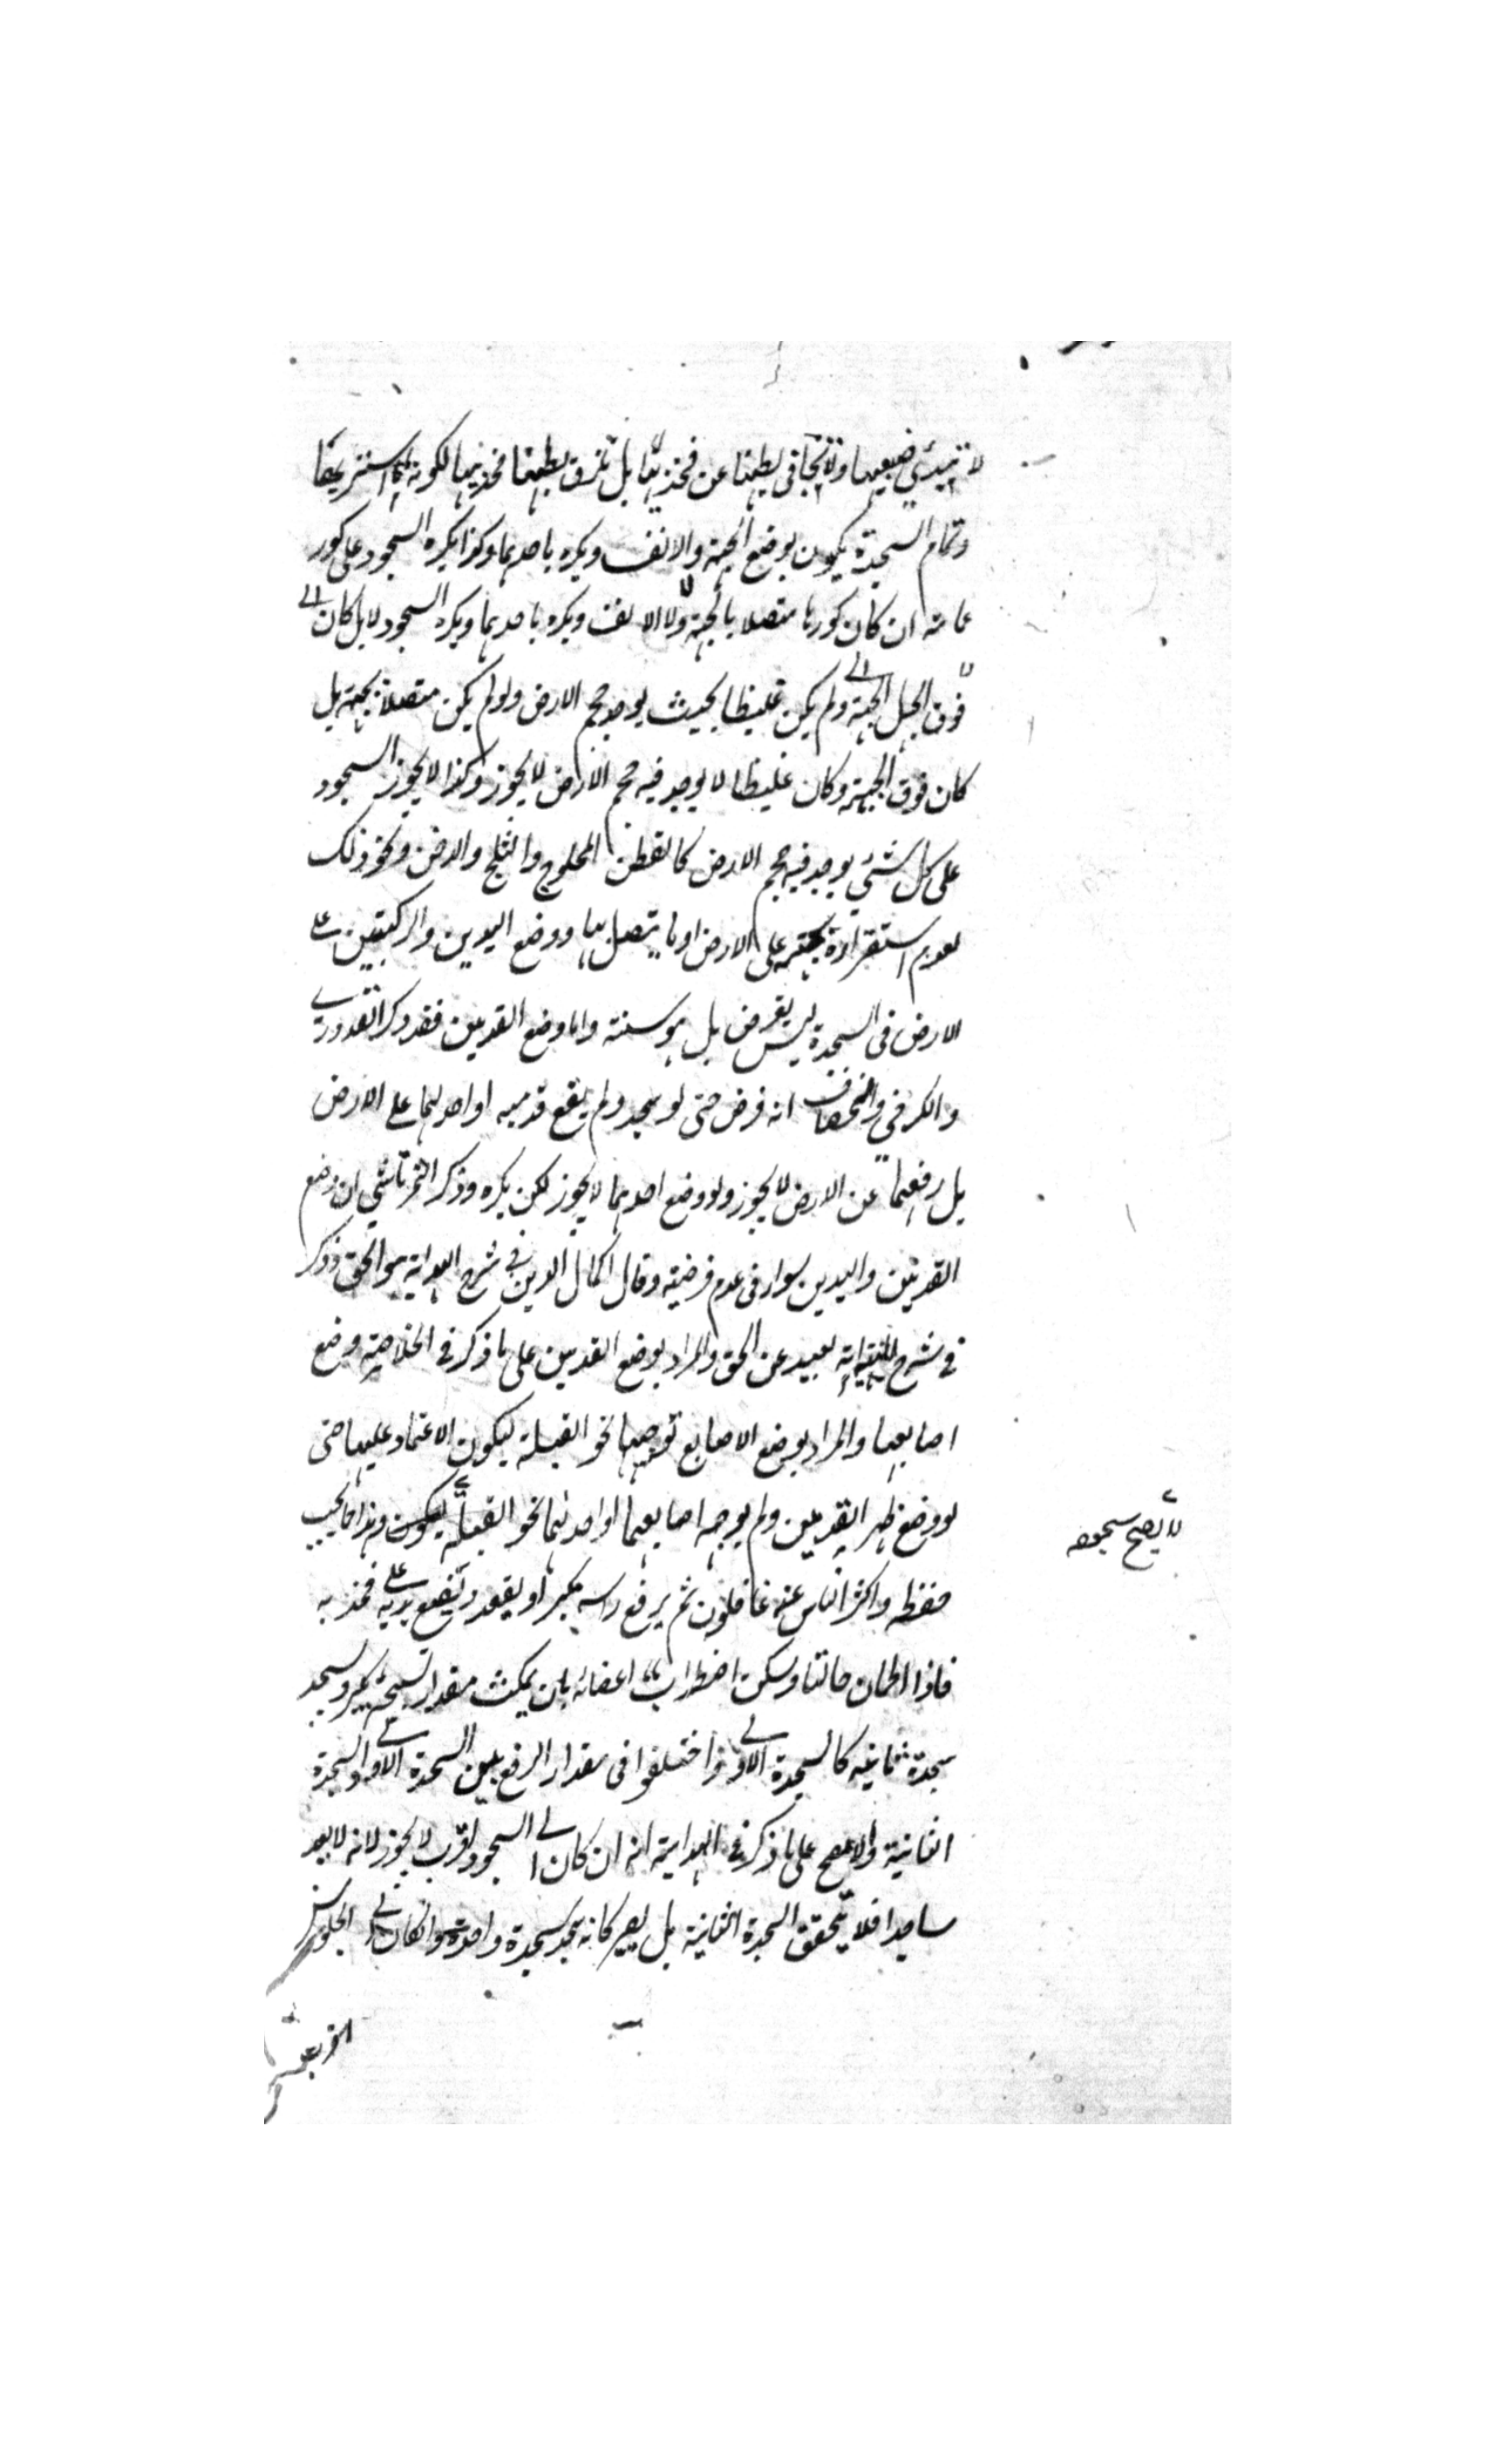 لا تبدي ضبعيها ولا تجافى بطنها عن فخذيها بل تلزق بطنها فخذيها لكونه استر بحقها
وتمام السجدة يكون بوضع الجبهة والانف ويكره باحدهما وكذا يكره السجود على كور
عمامته ان كان كورها متصلا بالجبهة ولا الانف ويكره باحدهما ويكره السجود لا بل كان
فوق الجبل الجبهة ولم يكن غليظا بحيث يوجد حجم الارض ولو لم يكن متصلا بجبهة بل
كان فوق الجبهة وكان غليظا لا يوجد فيه حجم الارض لا يجوز وكذا لا يجوز السجود
على كل شئ يوجد فيه حجم الارض كالقطن المحلوج والثلج والارض ونحو ذلك
لعدم استقراره بجبهته على الارض او ما يتصل بها ووضع اليدين والركبتين على
الارض فى السجدة ليس بفرض بل هو سنته واما وضع القدمين فقد ذكر القدوري
والكرخي والخصاف انه فرض حتى لو سجد ولم يضع قدميه او احدهما على الارض
بل رفعهما عن الارض لا يجوز ولو وضع احدهما لا يجوز لكن يكره وذكر التمرتاشي ان وضع
القدمين واليدين سواء فى عدم فرضيته وقال اكمال الدين في شرح الهداية هو الحق وذكر
في شرح المنية انه بعيد عن الحق والمراد بوضع القدمين على ما ذكر في الخلاصة وضع
اصابعها والمراد بوضع الاصابع توجهها نحو القبلة ليكون الاعتماد عليها حتى
لو وضع ظهر القدمين ولم يوجه اصابعهما او احدهما نحو القبلة ليكون وهذا مما يجب
لا يصح سجوده
حفظه واكثر الناس عنه غافلون ثم يرفع راسه مكبرا ويقعد ويضع يديه على فخذيه
فاذا اطمان جالسا وسكن اضطراب اعضائه بان يمكث مقدار تسبيحة يكبر ويسجد
سجدة ثانية كالسجدة الاولى واختلفوا فى مقدار الرفع بين السجدة الاولى والسجدة
الثانية والاصح على ما ذكر في الهداية انه ان كان الى السجود اقرب لا يجوز لانه لا يعد
ساجدا فلا يتحقق السجدة الثانية بل يصير كانه سجد سجدة واحدة وان كان الى الجلوس
اقرب